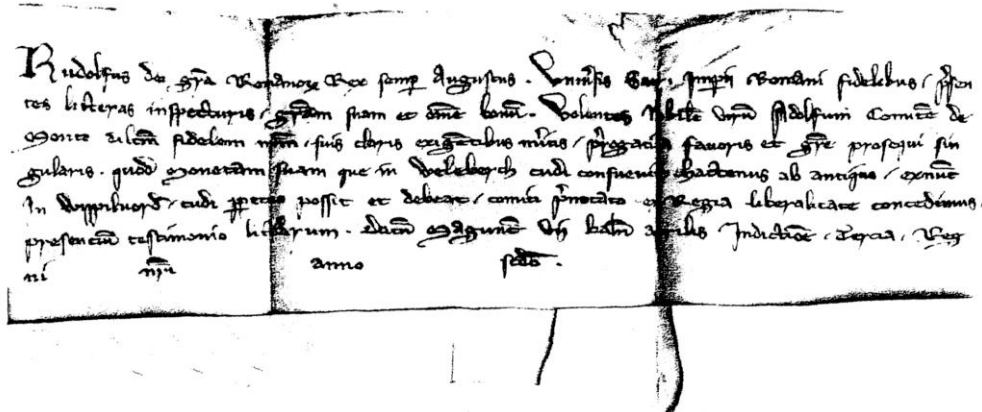 Rudolfus dei gr̄a Romanoꝝ Rex semꝑ Augustus. Vniūsis Sacri Impīi Romani fidelibus, p̄sen
tes litteras inspecturis, gr̄am suam et om̄e bonū. Volentes Nobilē virū Adolfum Comitē de
Monte dilc̄m fidelem nr̄m, suis claris exigētibus mītis, p̄rogatiua fauoris et gr̄e prosequi sin
gularis. quod Monetam suam que in Weleberch cudi consueuit hactenus ab antiquo, exnūc
In Wippiluord, cudi ꝑpetuo possit et debeat, comiti p̄notato ex Regia liberalitate concedimus.
presenciū testimonio litterarum. Datū Magunc̄ vij kal'n aprilis Indictiōe, Tercia, Reg
ni nr̄i anno scd̄o.